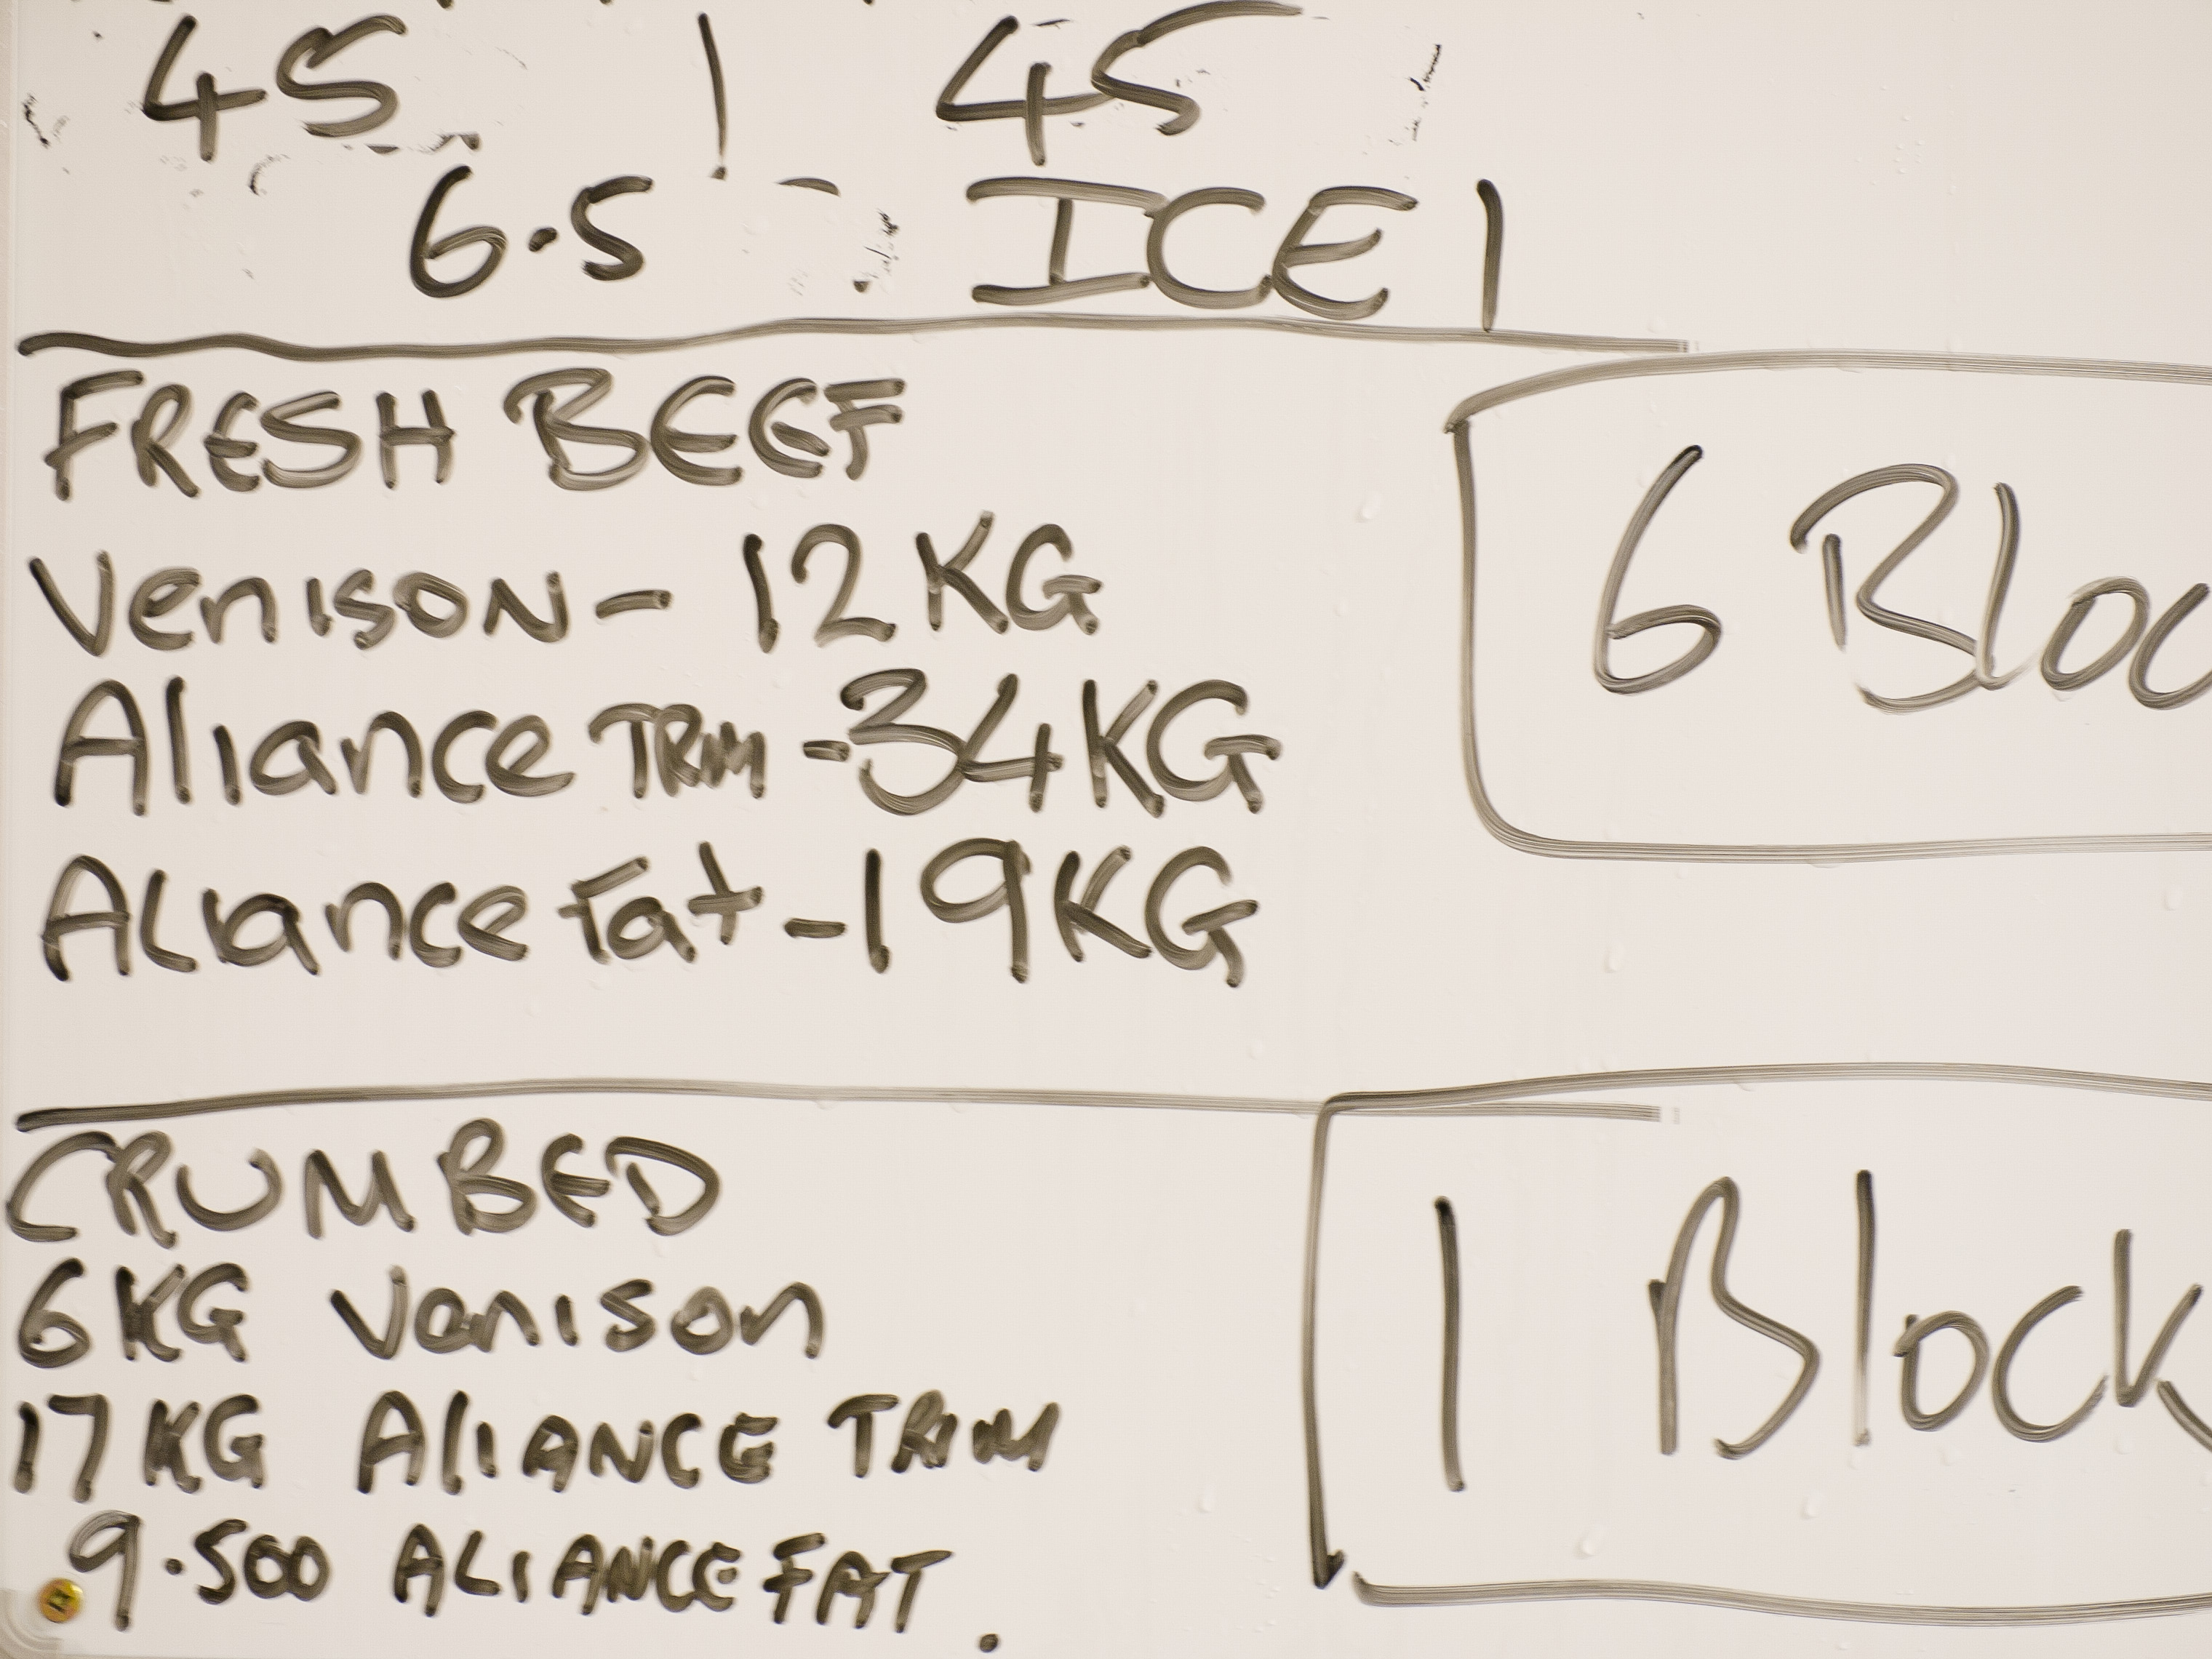 45 1 45
6.5 ICE 1
FRESH BEEF
Venison - 12 KG
Aliance TRIM - 34 KG
ALiance Fat - 19 KG
6 Bloc
CRUMBED
6 KG Venison
17 KG AlIANCE TRIM
9.500 ALIANCE FAT.
1 Block